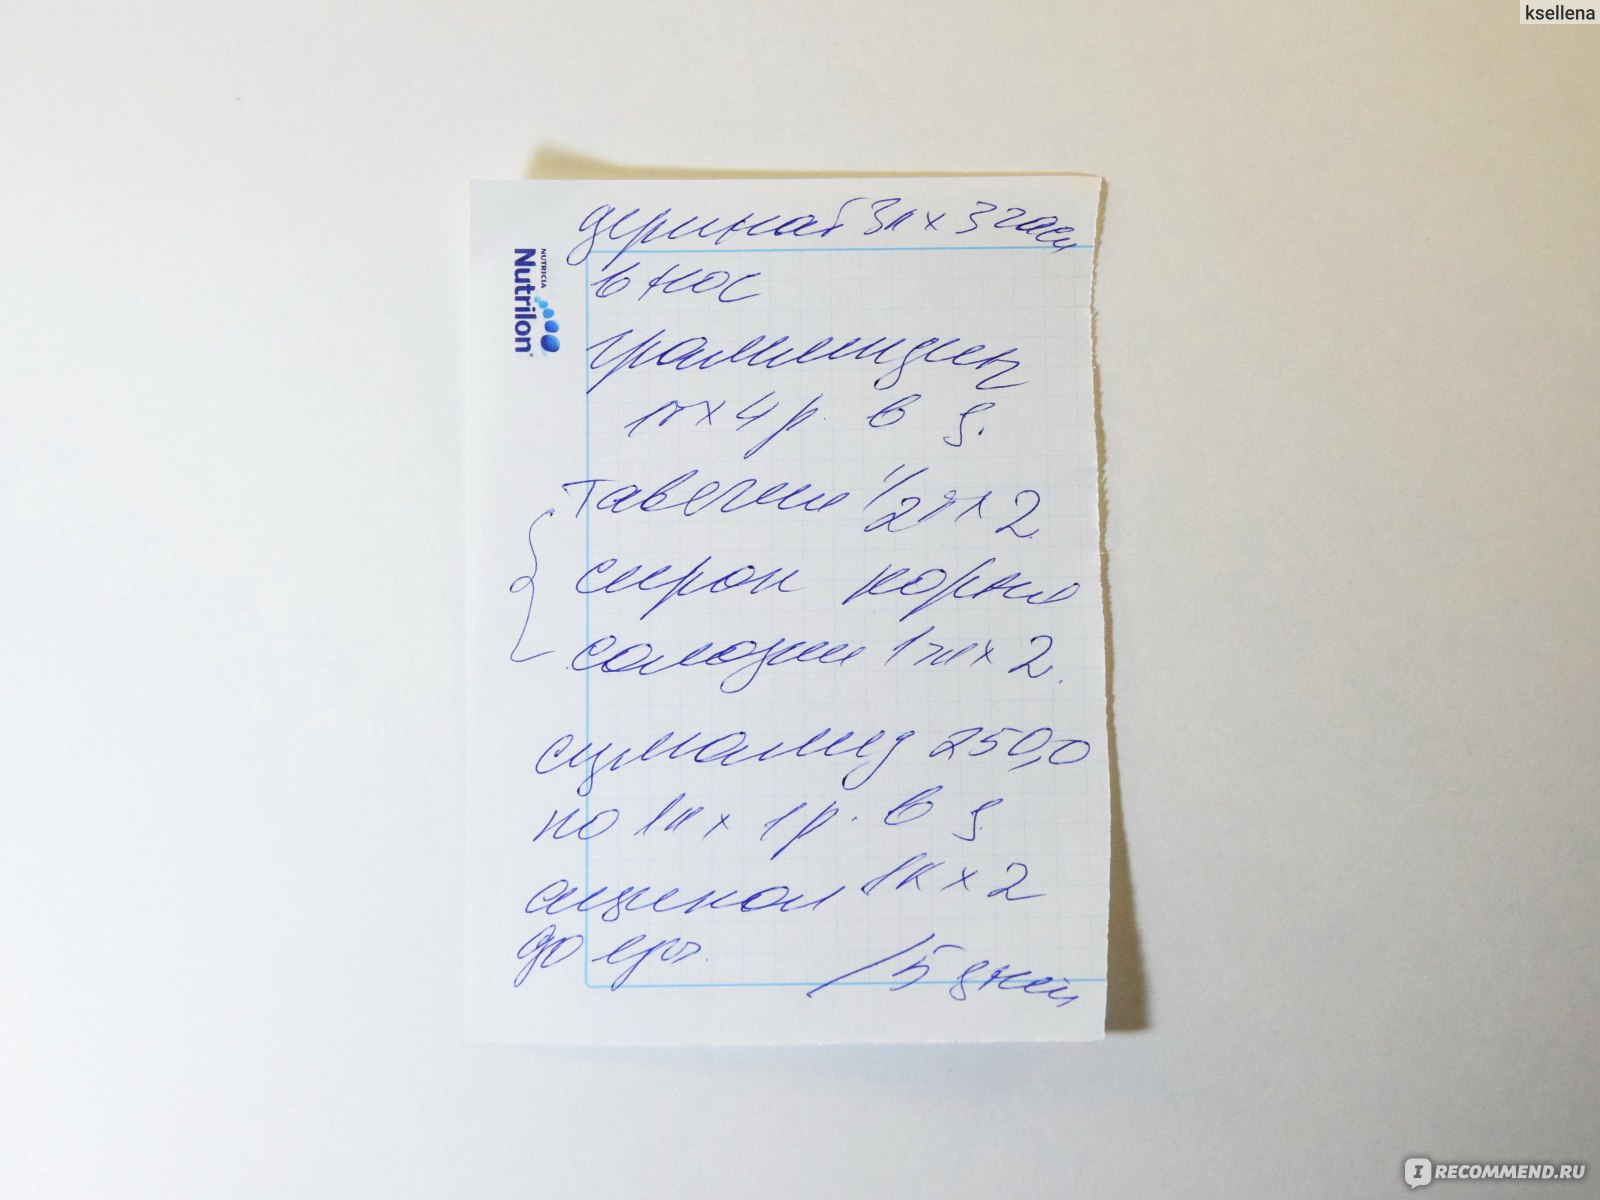 ksellena
NUTRICIA
Nutrilon
деринат 3к х 3 часа
в нос
граммидин
1т х 4 р. в д.
тавегил 1/2 т х 2
сироп корня
солодки 1 чл х 2.
сумамед 250,0
по 1к х 1 р. в д.
аципол 1к х 2
до еды.
/ 5 дней
IRECOMMEND.RU